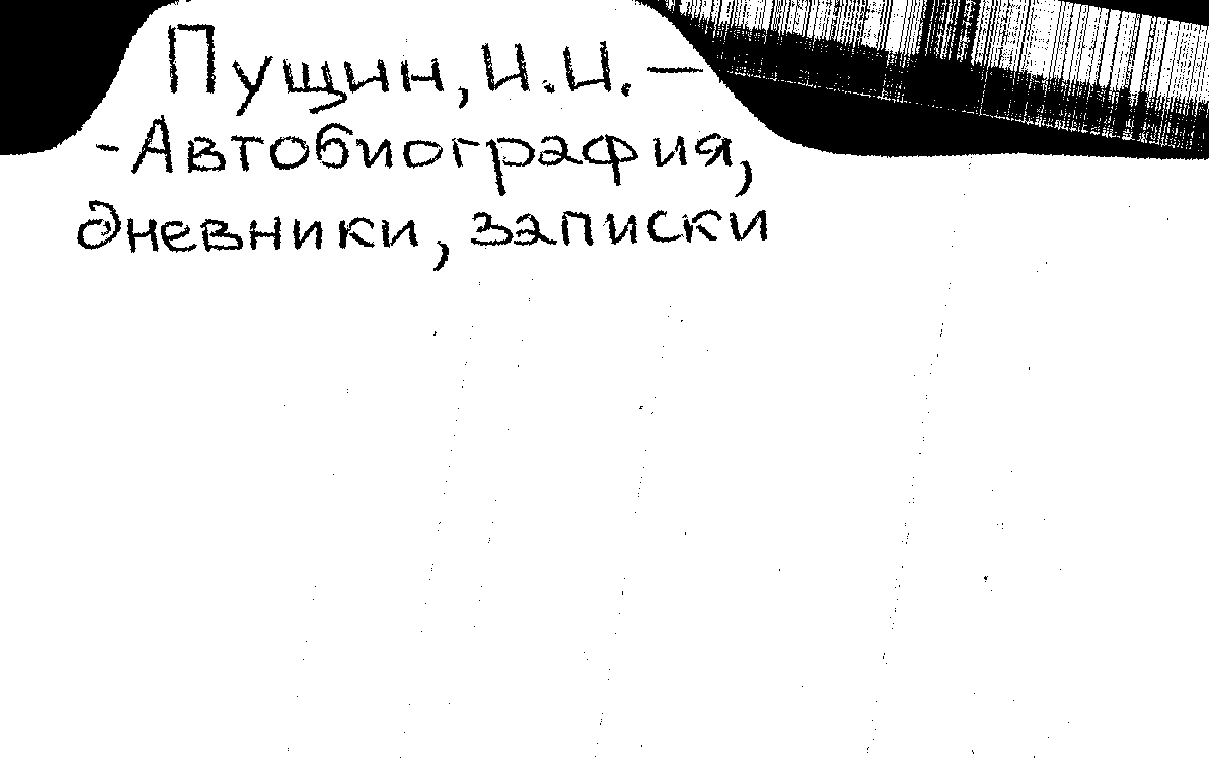 Пущин, И.И. —
- Автобиография,
дневники, записки